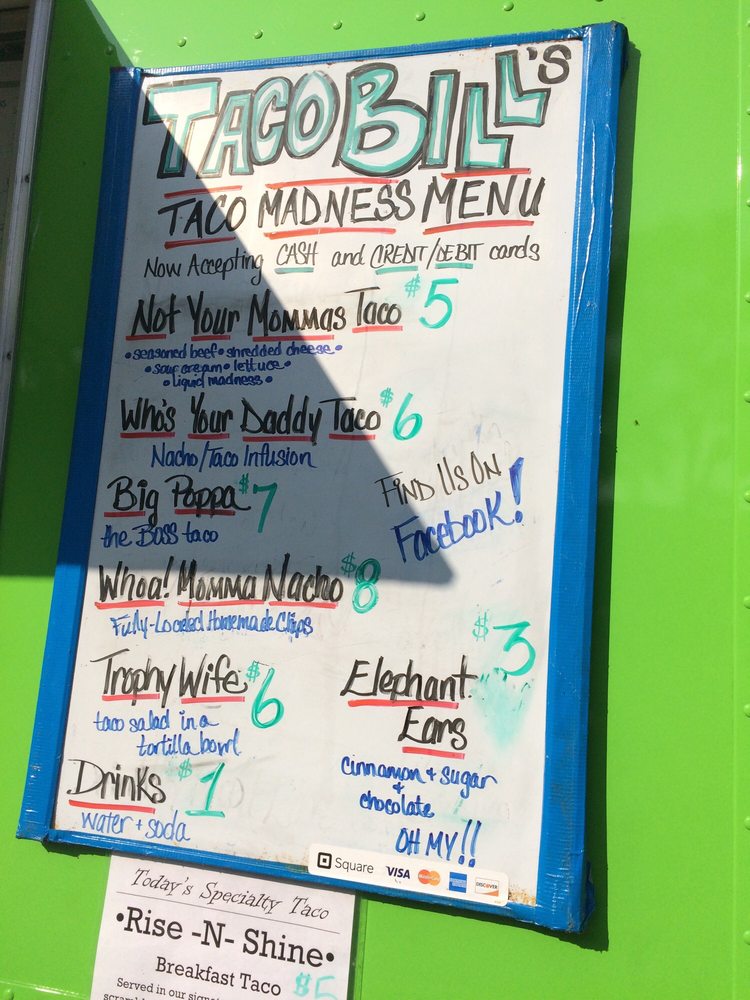 TACO BILL'S
TACO MADNESS MENU
Now Accepting CASH and CREDIT/DEBIT cards
Not Your Mommas Taco $5
•seasoned beef•shredded cheese•
•sour cream•lettuce•
•liquid madness•
Who's Your Daddy Taco $6
Nacho/Taco Infusion
Big Poppa $7
the BOSS taco
FIND US ON
Facebook!
Whoa! Momma Nacho $8
Fully-Loaded Homemade Chips
Trophy Wife $6
taco salad in a
tortilla bowl
Drinks $1
water + soda
$3
Elephant
Ears
cinnamon + sugar
+
chocolate
OH MY!!
Square VISA MasterCard DISCOVER
Today's Specialty Taco
•Rise -N- Shine•
Breakfast Taco $5
Served in our